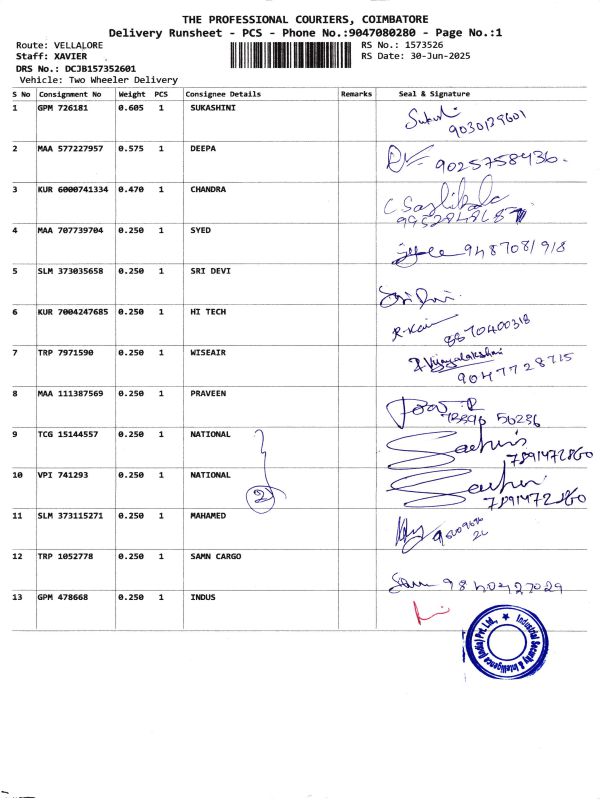 THE PROFESSIONAL COURIERS, COIMBATORE
Delivery Runsheet - PCS - Phone No.:9047080280 - Page No.:1
Route: VELLALORE RS No.: 1573526
Staff: XAVIER RS Date: 30-Jun-2025
DRS No.: DCJB157352601
Vehicle: Two Wheeler Delivery
S No Consignment No Weight PCS Consignee Details Remarks Seal & Signature
1 GPM 726181 0.605 1 SUKASHINI
9030129601
2 MAA 577227957 0.575 1 DEEPA
9025758436.
3 KUR 6000741334 0.470 1 CHANDRA
4 MAA 707739704 0.250 1 SYED
5 SLM 373035658 0.250 1 SRI DEVI
Sri Devi.
6 KUR 7004247685 0.250 1 HI TECH
8870400318
7 TRP 7971590 0.250 1 WISEAIR
Vijayalakshmi
9047728715
8 MAA 111387569 0.250 1 PRAVEEN
9 TCG 15144557 0.250 1 NATIONAL
7891472860
10 VPI 741293 0.250 1 NATIONAL
2
7891472860
11 SLM 373115271 0.250 1 MAHAMED
12 TRP 1052778 0.250 1 SAMN CARGO
13 GPM 478668 0.250 1 INDUS
Industrial Security & Intelligence (India) Pvt. Ltd.,